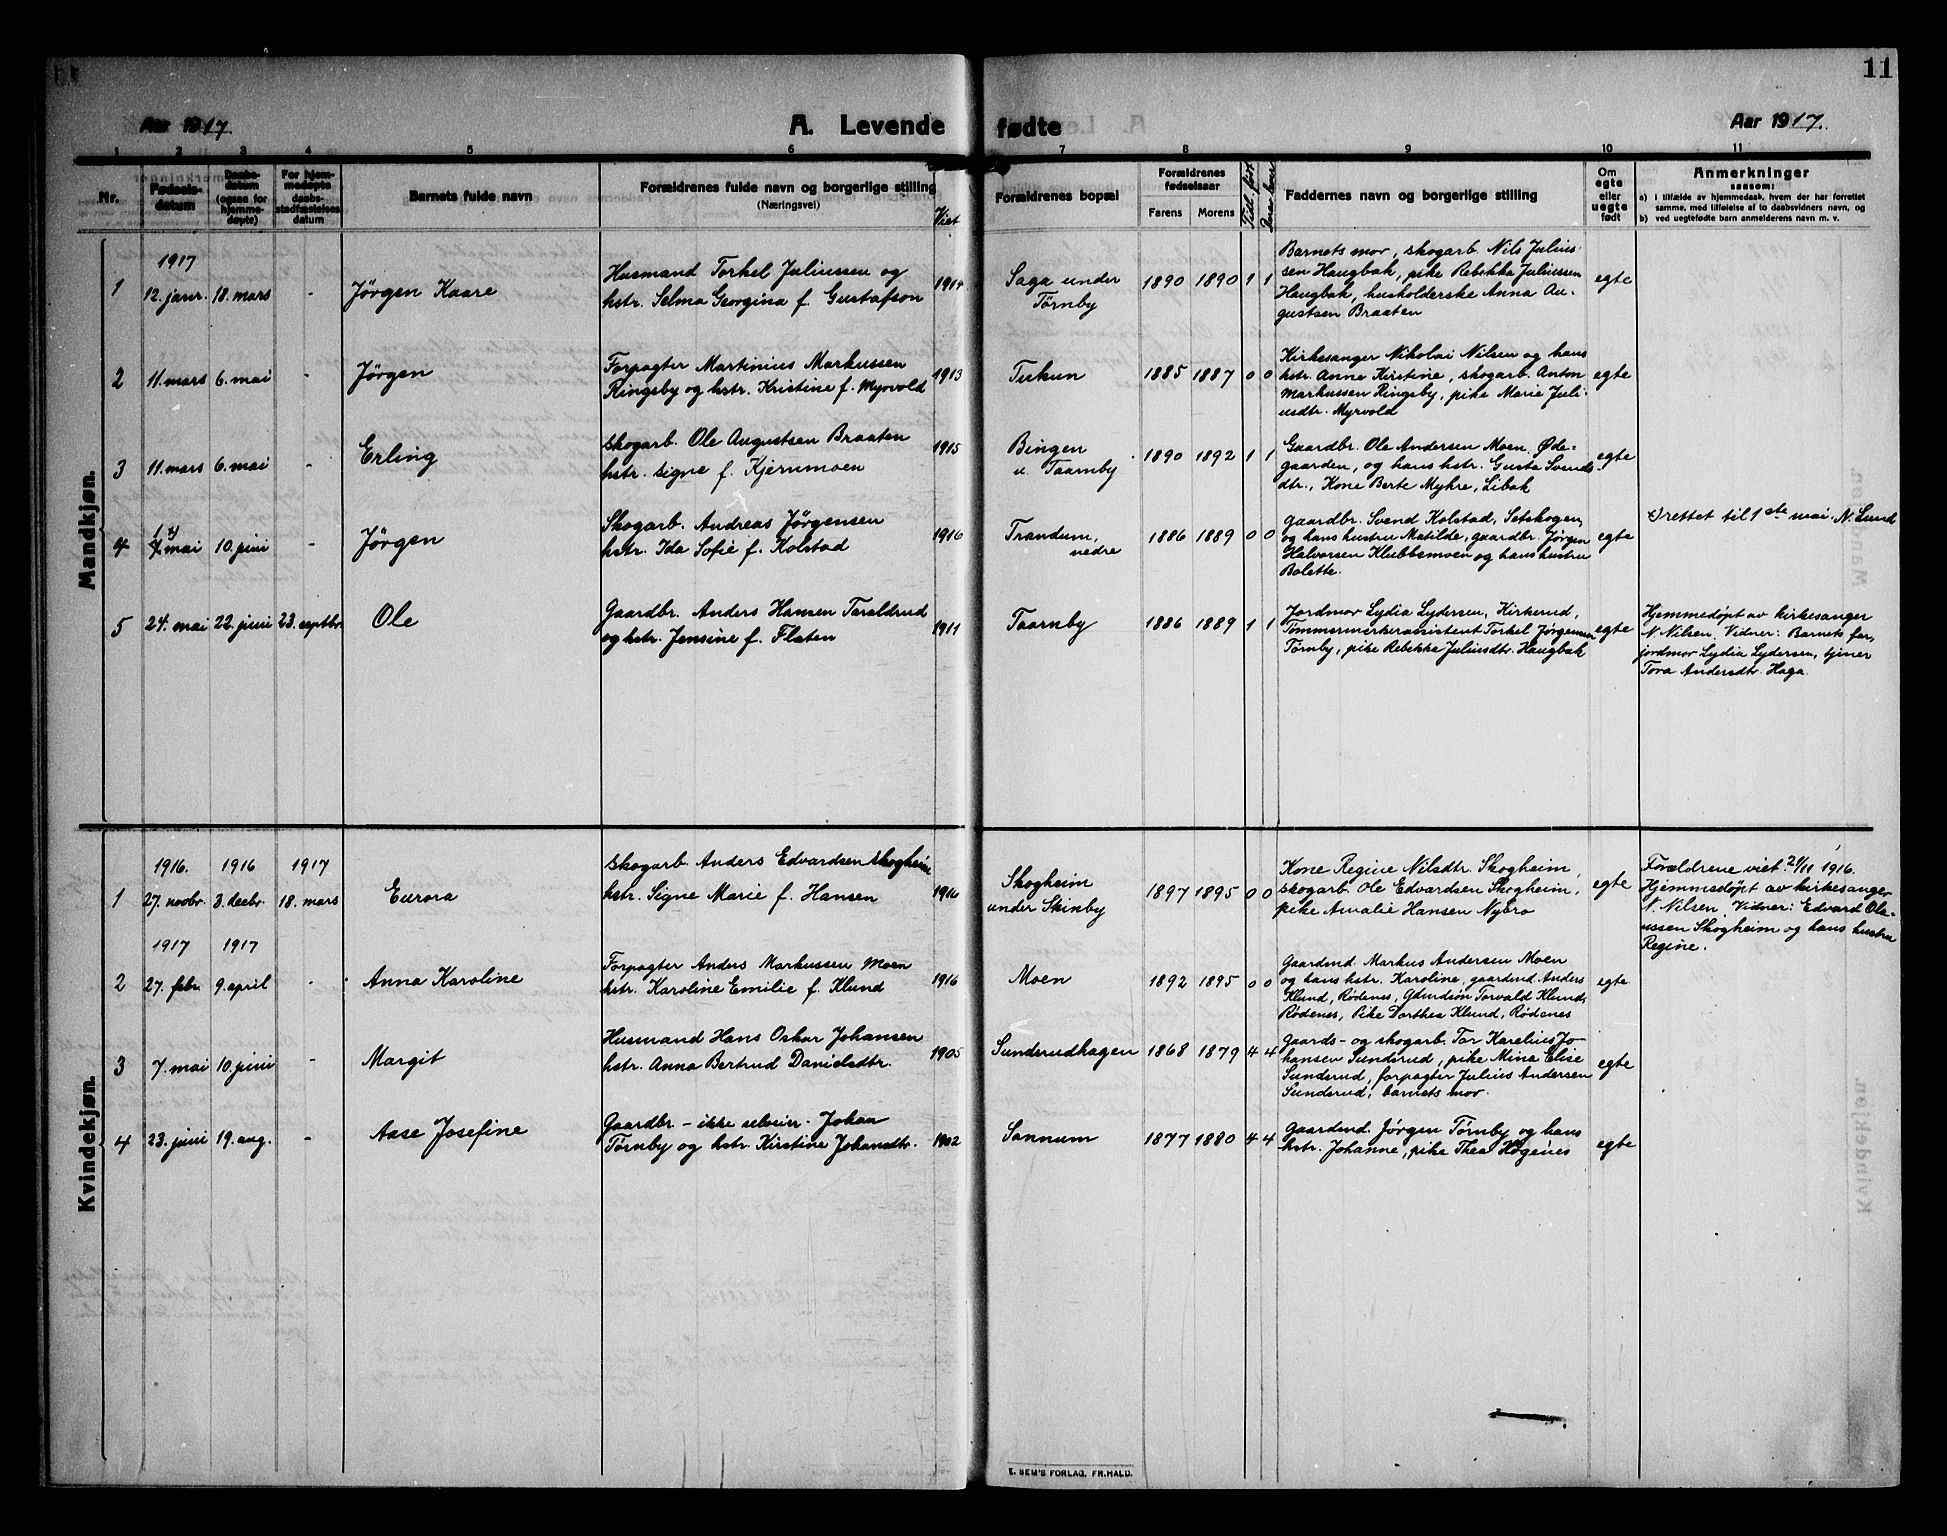 11
Aar 1917.
A. Levende
fødte
Aar 1917.
1 2 3 4 5 6 7 8 9 10 11
Nr.
Fødsels-
datum
Daabs-
datum
(ogsaa for
hjemme-
døpte)
For hjem-
medøpte
daabs-
stadfæstelses
datum
Barnets fulde navn
Forældrenes fulde navn og borgerlige stilling
(Næringsvei)
Viet
Forældrenes bopæl
Forældrenes
fødselsaar
Farens Morens
Faddernes navn og borgerlige stilling
Om
egte
eller
uegte
født
Anmerkninger
saasom:
a) i tilfælde av hjemmedaab, hvem der har forrettet
samme, med tilføielse af to daabsvidners navn, og
b) ved uegtefødte barn anmelderens navn m. v.
Mandkjøn.
1917
1 12. janr. 18. mars - Jørgen Kaare
Husmand Torkel Juliussen og
hstr. Selma Georgina f. Gustafson
1914
Saga under
Tørnby
1890 1890 1 1
Barnets mor, skogarb. Nils Julius-
sen Haugbak, pike Rebekka Juliussen
Haugbak, husholderske Anna Au-
gustsen Braaten
egte
2 11. mars 6. mai - Jørgen
Forpagter Martinius Markussen
Ringsby og hstr. Kristine f. Myrvold
1913
Tukun
1885 1887 0 0
Kirkesanger Nikolai Nilsen og hans
hstr. Anne Kirstine, skogarb. Anton
Markussen Ringsby, pike Marie Juli-
usdtr. Myrvold
egte
3 11. mars 6. mai - Erling
Skogarb. Ole Augustsen Braaten
hstr. Signe f. Kjernmoen
1915
Bingen
u. Taarnby
1890 1892 1 1
Gaardbr. Ole Andersen Moen, Øde-
gaarden, og hans hstr. Gusta Svends-
dtr., Kone Berte Myhre, Libak
egte
4 1 x) 7. mai 10. juni - Jørgen
Skogarb. Andreas Jørgensen
hstr. Ida Sofie f. Kolstad
1916
Trandum,
nedre
1886 1889 0 0
Gaardbr. Svend Kolstad, Setskogen,
og hans hustru Matilde, gaardbr. Jørgen
Halvorsen Klubbemoen og hans hustru
Bolette.
egte
x) rettet til 1ste mai. N. Lund
5 24. mai 22. juni 23. septbr. Ole
Gaardbr. Anders Hansen Taraldrud
og hstr. Jensine f. Flaten
1911
Taarnby
1886 1889 1 1
Jordmor Lydia Lydersen, Kirkerud,
Tømmermerkerassistent Torkel Jørgensen
Tørnby, pike Rebekka Juliusdtr. Haugbak
egte
Hjemmedøpt av kirkesanger
N. Nilsen. Vidner: Barnets far,
jordmor Lydia Lydersen, tjener
Tora Andersdtr. Haga.
Kvindekjøn.
1916. 1916 1917
1 27. novbr. 3. decbr. 18. mars Eurora
Skogarb. Anders Edvardsen Skogheim
hstr. Signe Marie f. Hansen
1916
Skogheim
under Skinby
1897 1895 0 0
Kone Regine Nilsdtr. Skogheim,
skogarb. Ole Edvardsen Skogheim,
pike Amalie Hansen Nybro
egte
Forældrene viet 21/11 1916.
Hjemmedøpt av kirkesanger
N. Nilsen. Vidner: Edvard Ola-
ussen Skogheim og hans hustru
Regine.
1917 1917
2 27. febr. 9. april - Anna Karoline
Forpagter Anders Markussen Moen
hstr. Karoline Emilie f. Klund
1916
Moen
1892 1895 0 0
Gaardmd. Markus Andersen Moen
og hans hstr. Karoline, gaardmd. Anders
Klund, Rødenes, Gdmdsøn Torvald Klund,
Rødenes, Pike Dorthea Klund, Rødenes
egte
3 7. mai 10. juni - Margit
Husmand Hans Oskar Johansen
hstr. Anna Bertrud Danielsdtr.
1905
Sunderudhagen
1868 1879 4 4
Gaards- og skogarb. Tor Karelius Jo-
hansen Sunderud, pike Mina Elise
Sunderud, forpagter Julius Andersen
Sunderud, barnets mor.
egte
4 23. juni 19. aug. - Aase Josefine
Gaardbr - ikke selveier. Johan
Tørnby og hstr. Kirstine Johansdtr.
1902
Sannum
1877 1880 4 4
Gaardmd. Jørgen Tørnby og hans
hstr. Johanne, pike Thea Høgenes
egte
E. SEM'S FORLAG, FR.HALD.